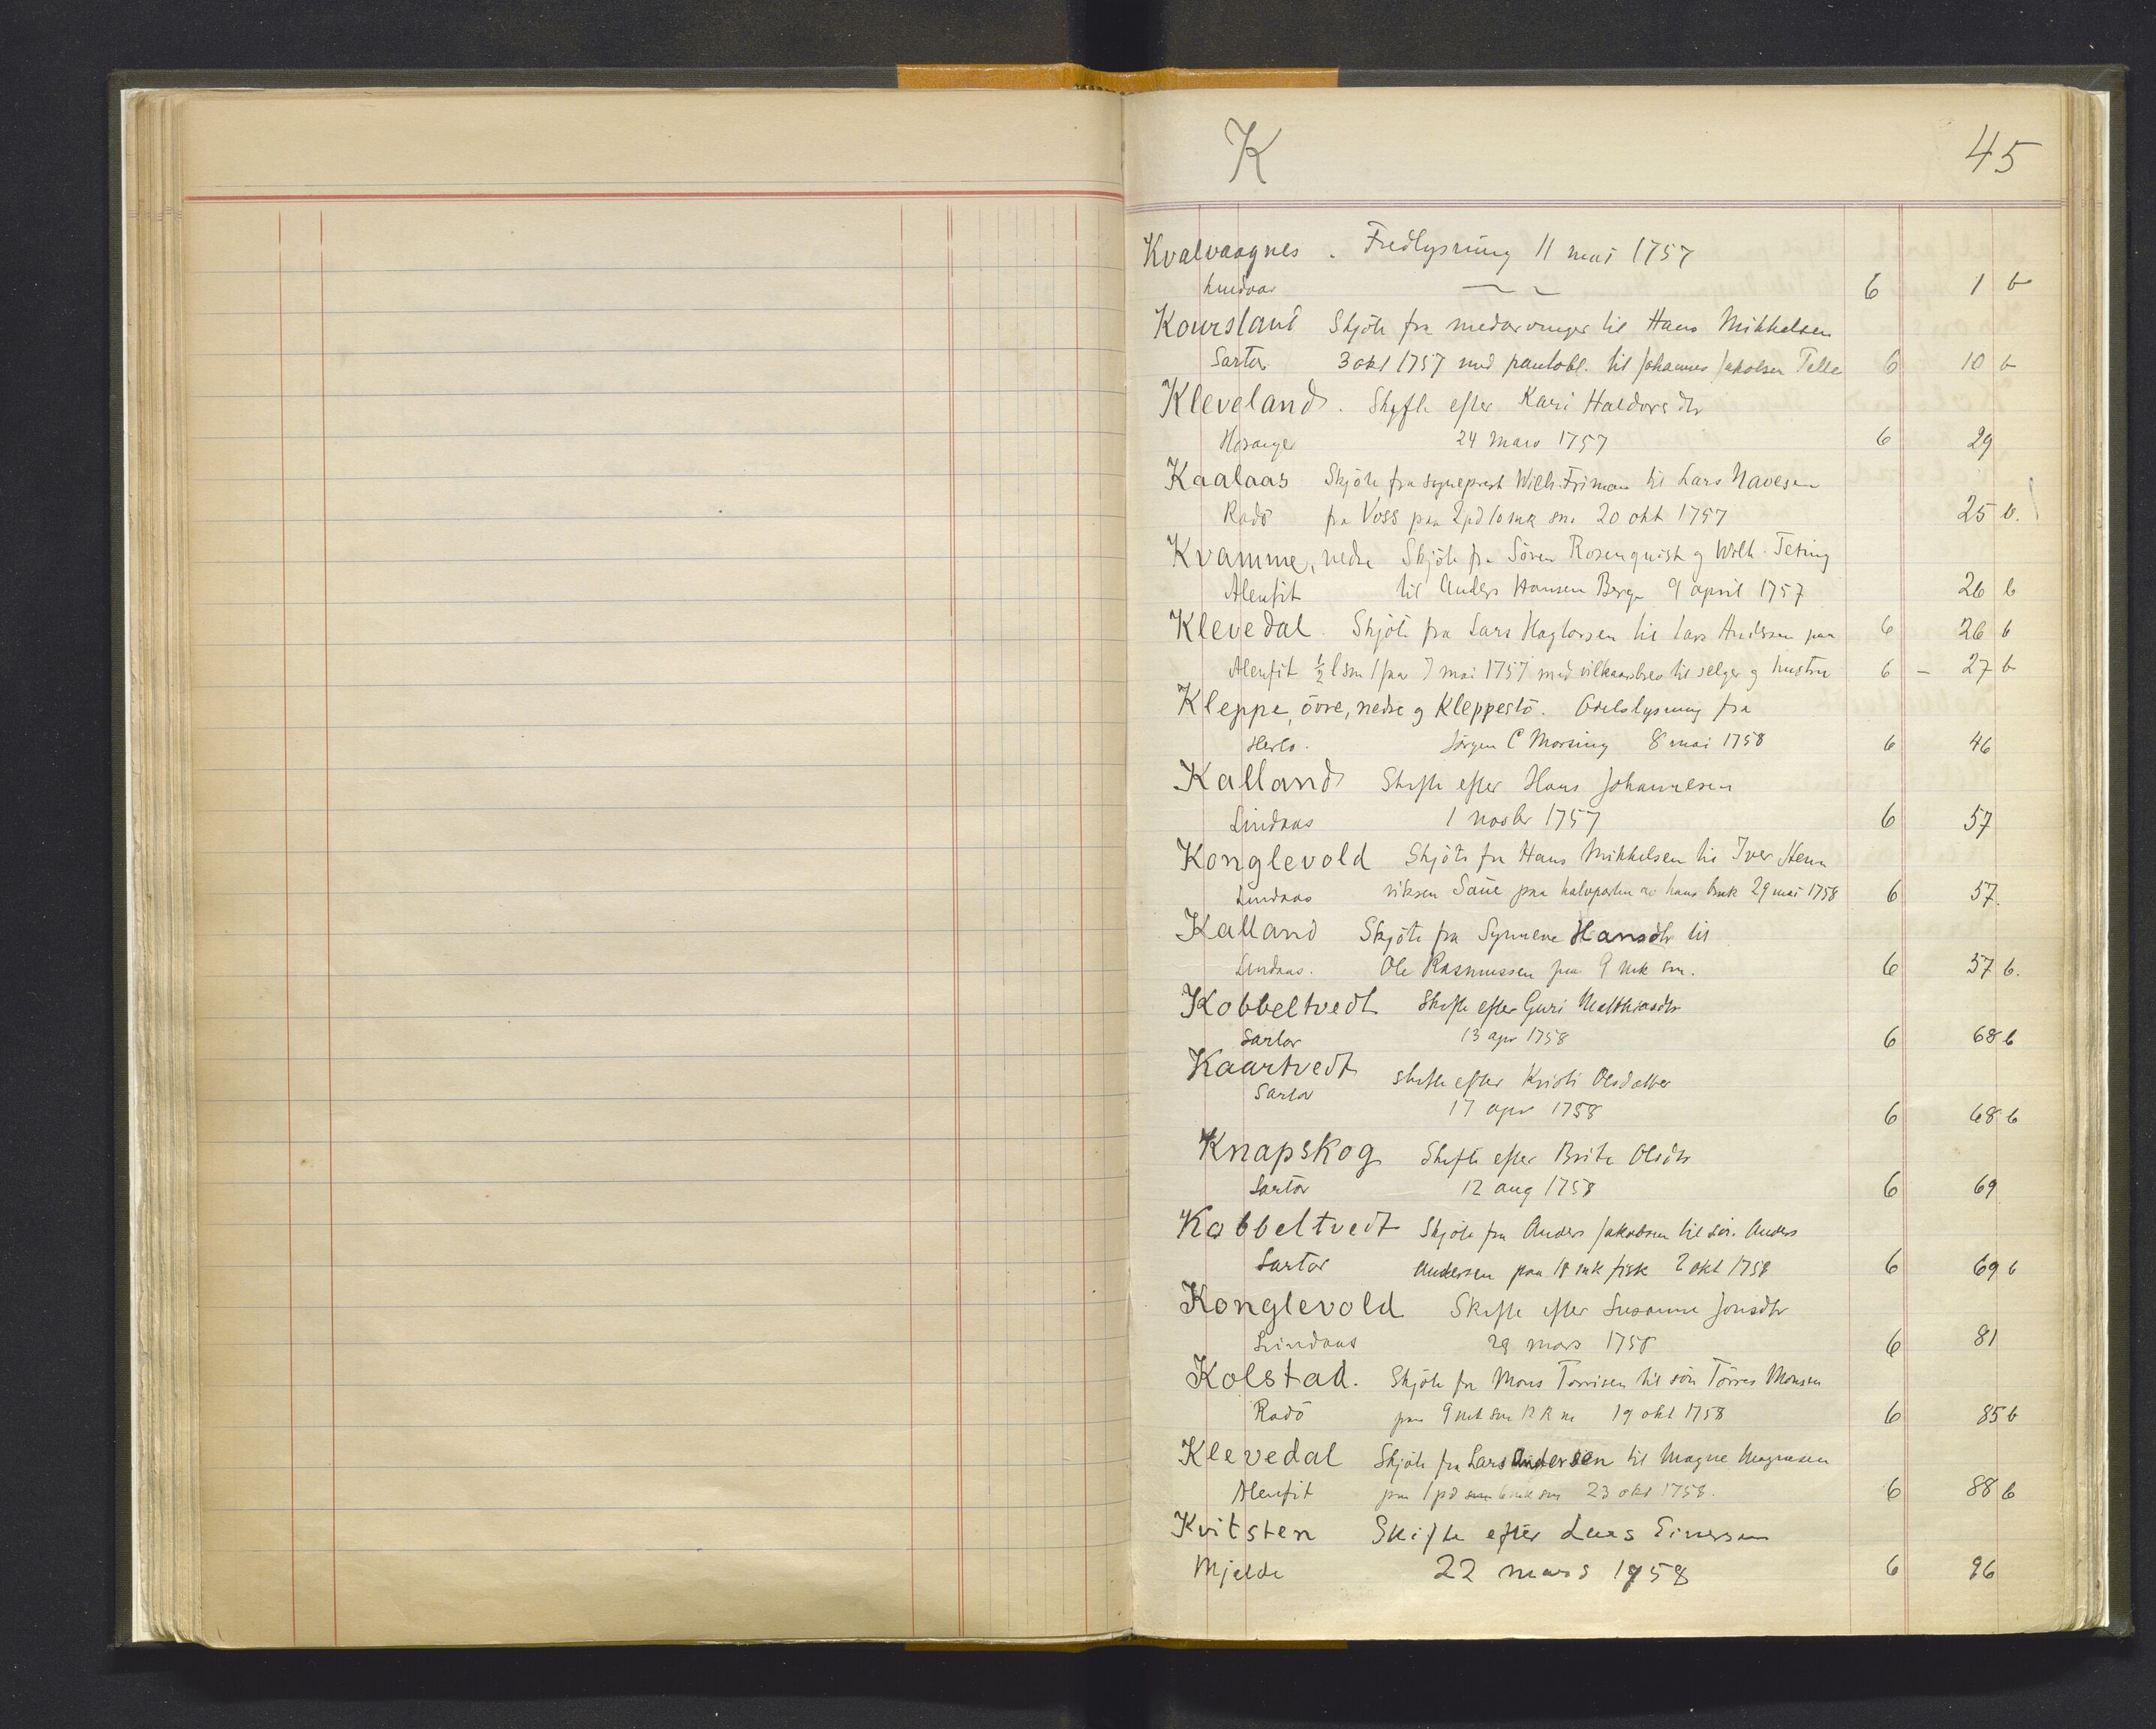 K 45
Kvalvaagnes . Fredlysning 11 mai 1757
Lindaas 6 1 b
Koursland Skjöte fra medarvinger til Hans Mikkelsen
Sartor 3 okt 1757 med pantobl. til Johannes Jakobsen Telle 6 10 b
Kleveland. Skifte efter Kari Haldorsdtr
Hosanger 24 mars 1757 6 29
Kaalaas Skjöte fra sogneprest Wilh. Friman til Lars Navesen
Radö fra Voss paa 2 pd 10 mk sm. 20 okt 1757 25 b.
Kvamme, nedre Skjöte fra Sören Rosenquist og Wilh. Teting
Alenfit til Anders Hansen Berge 9 april 1757 26 b
Klevedal Skjöte fra Lars Haglorsen til Lars Andersen paa 6 26 b
Alenfit ½ l sm 1 faar 7 mai 1757 med vilkaarsbrev til selger og hustru 6 - 27 b
Kleppe, övre, nedre og Kleppestö. Odelslysning fra
Herlo. Jörgen C Morsing 8 mai 1758 6 46
Kalland Skifte efter Hans Johannesen
Lindaas 1 novbr 1757 6 57
Konglevold Skjöte fra Hans Mikkelsen til Iver Hen
Lindaas riksen Saue paa halvparten av hans bruk 29 mai 1758 6 57.
Kalland Skjöte fra Synneve Hansdtr til
Lindaas. Ole Rasmussen paa 9 mk sm. 6 57 b.
Kobbeltvedt Skifte efter Guri Matthiasdtr
Sartor 13 apr 1758 6 68 b
Kaartvedt Skifte efter Kristi Olsdatter
Sartor 17 apr 1758 6 68 b
Knapskog Skifte efter Brite Olsdtr
Sartor 12 aug 1758 6 69
Kobbeltvedt Skjöte fra Anders Jakobsen til sön Anders
Sartor Andersen paa 18 mk fisk 2 okt 1758 6 69 b
Konglevold Skifte efter Susanne Jonsdtr
Lindaas 29 mars 1758 6 81
Kolstad. Skjöte fra Mons Torrisen til sön Törres Monsen
Radö paa 9 mk sm 19 okt 1758 6 85 b
Klevedal Skjöte fra Lars Andersen til Magne Magnesen
Alenfit paa 1 pd 6 mk sm 23 okt 1758. 6 88 b
Kvitsten Skifte efter Lars Einersen
Mjelde 22 mars 1758 6 96